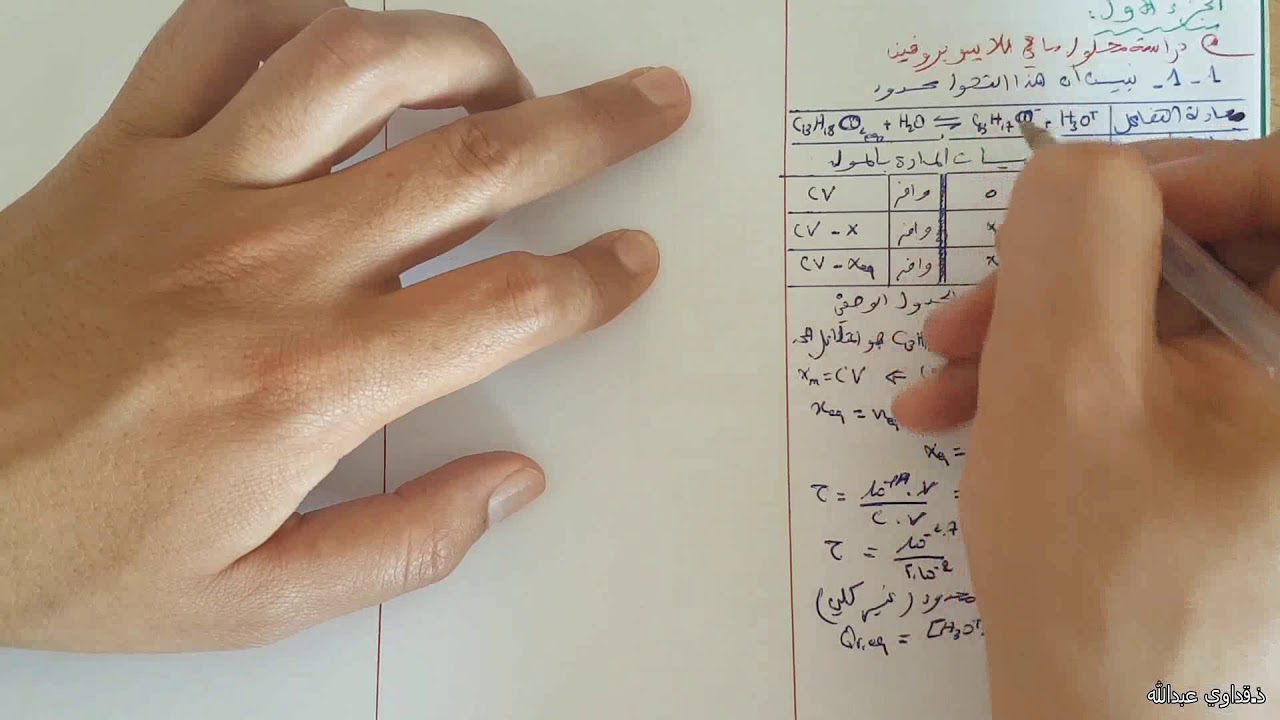 الجزء الأول:
دراسة محلول مائي للإيبوبروفين
1-1- نبين أن هذا التحول محدود
معادلة التفاعل C₁₃H₁₈O₂ₐq + H₂O ⇌ C₁₃H₁₇O + H₃O⁺
المادة بالمول
CV وافر 0
CV - x وافر x
CV - xeq وافر x
الجدول الوصفي
C₁₃H هو المتفاعل
xm = CV ⇐
xeq = n
xeq =
τ = 10⁻ᵖᴴ . V / C . V =
τ = 10⁻²·⁷
محدود (غير كلي)
Qr,eq = [H₃O⁺
ذ.قداوي عبدالله